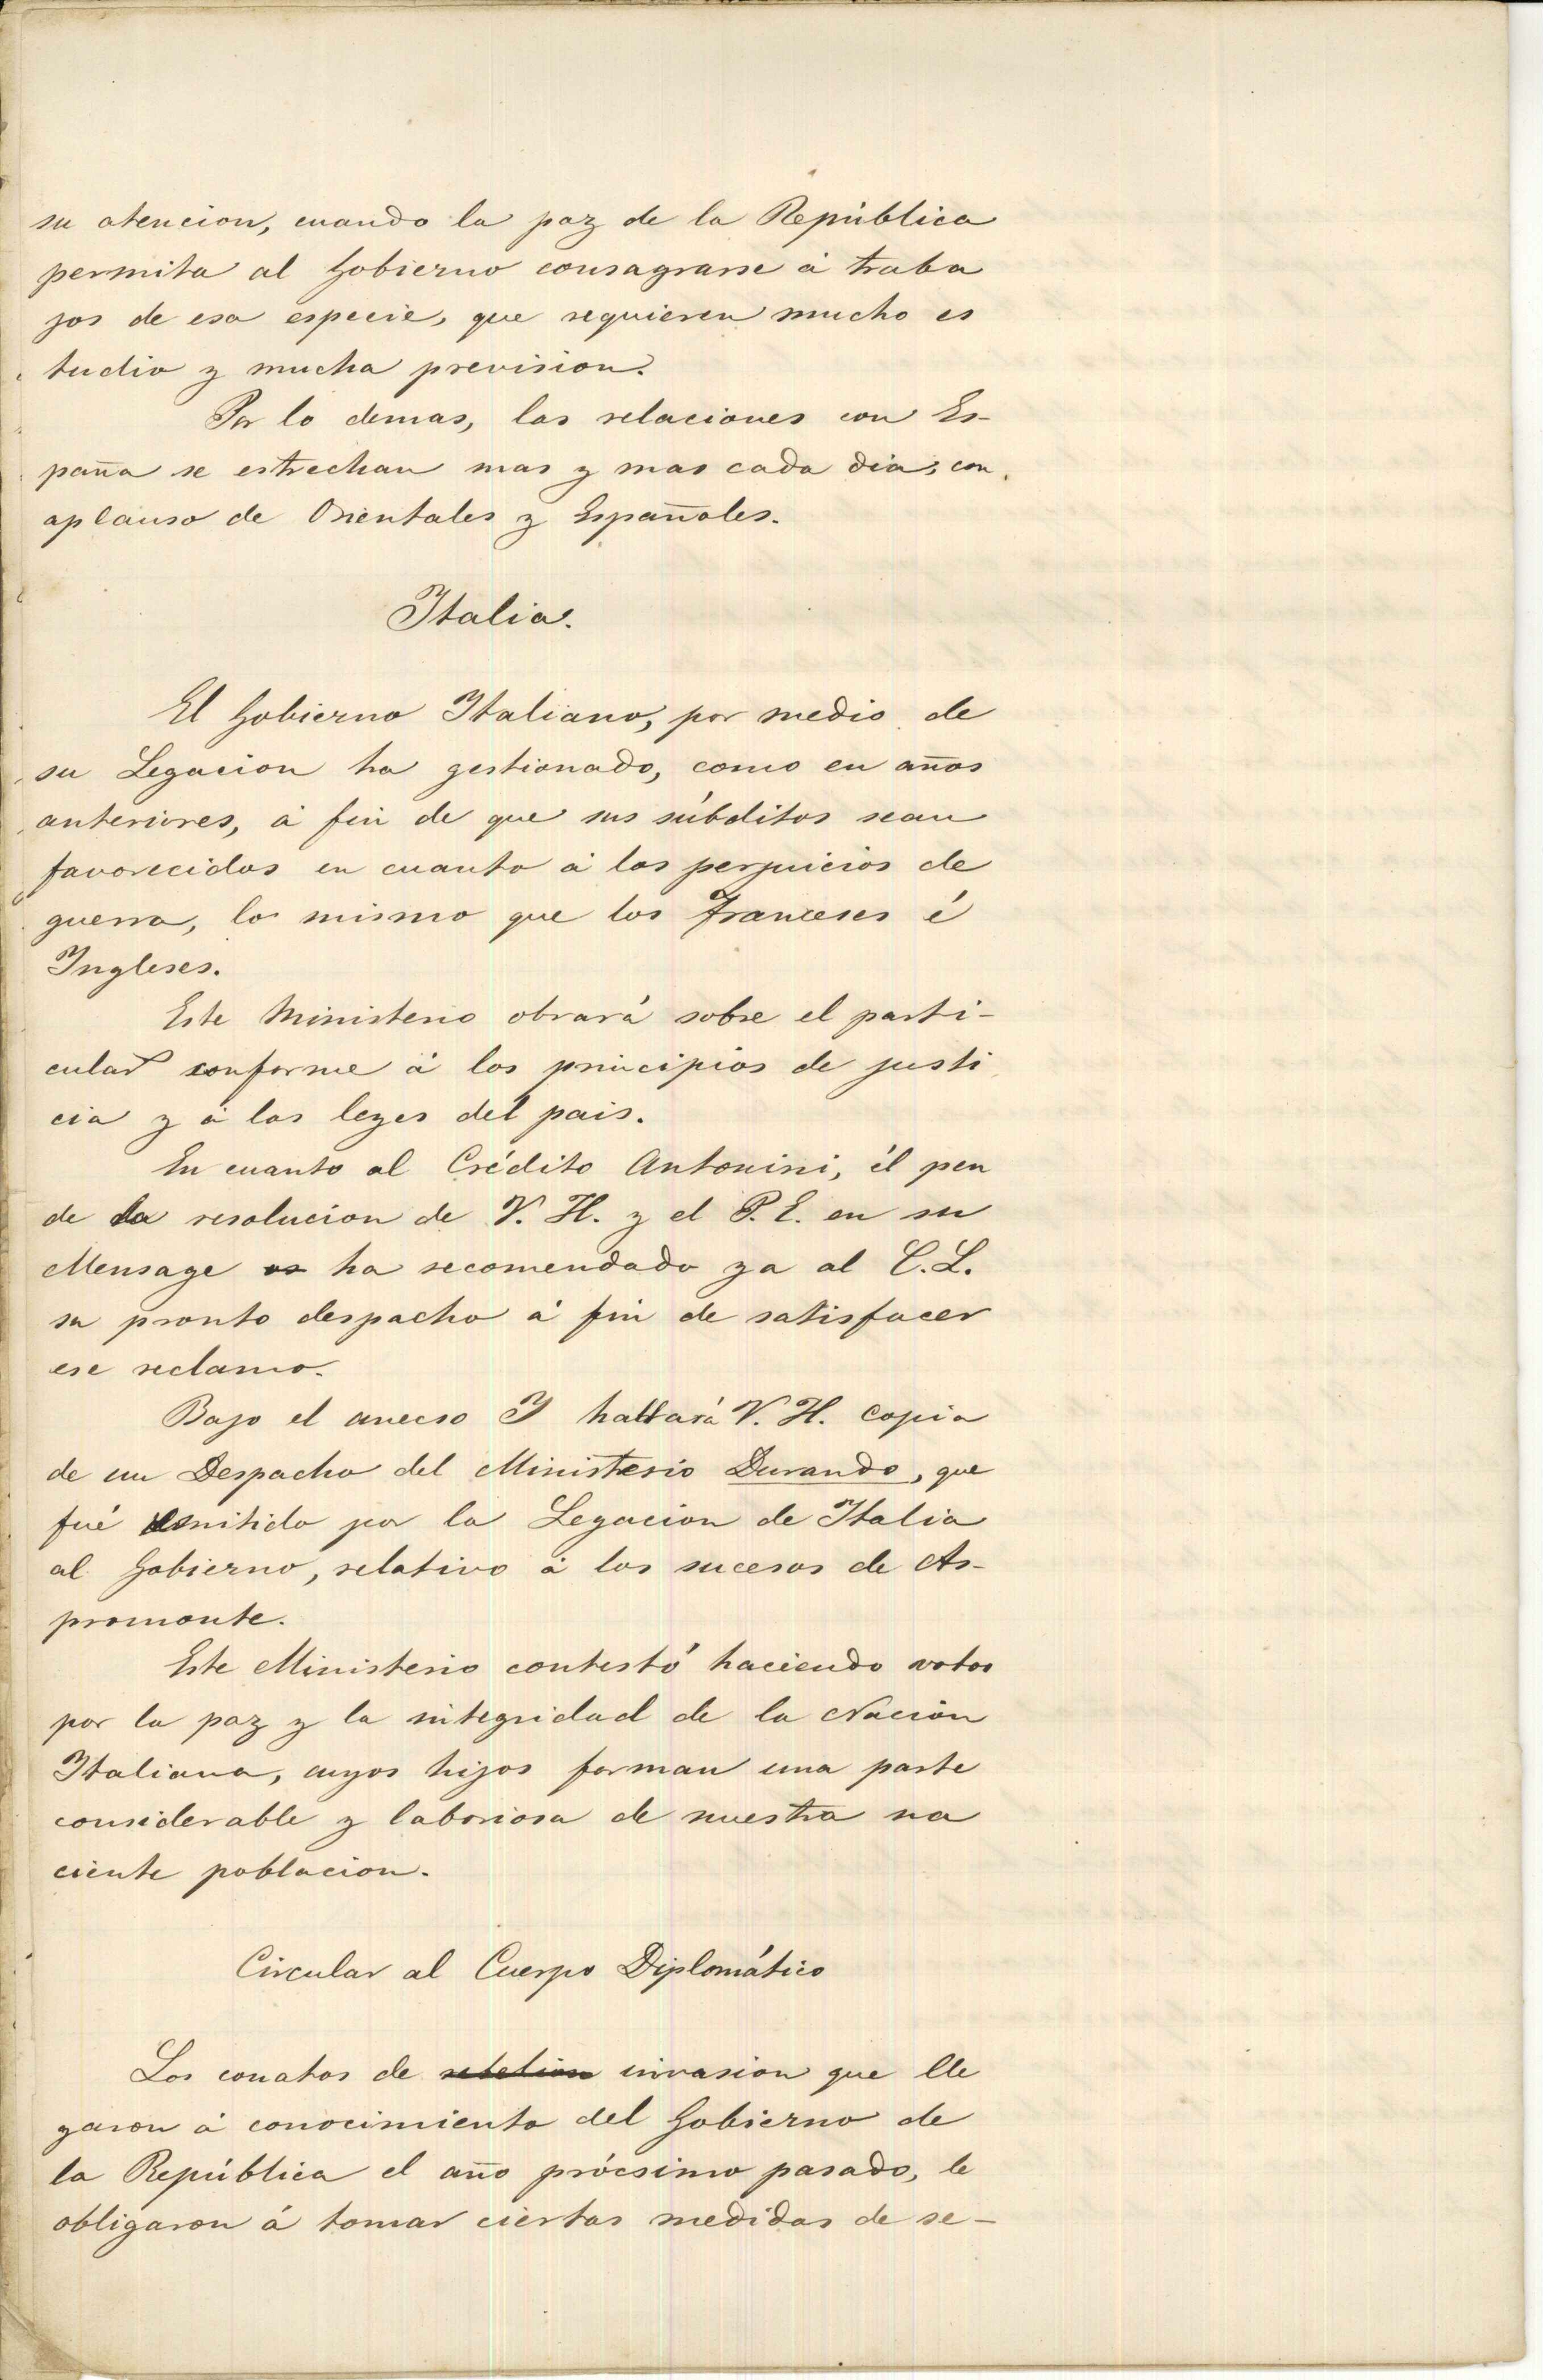 su atencion, cuando la paz de la República
permita al Gobierno consagrarse á traba
jos de esa especie, que requieren mucho es
tudio y mucha prevision.
Por lo demas, las relaciones con Es-
paña se estrechan mas y mas cada dia, con
aplauso de Orientales y Españoles.
Italia.
El Gobierno Italiano, por medio de
su Legacion ha gestionado, como en años
anteriores, á fin de que sus súbditos sean
favorecidos en cuanto á los perjuicios de
guerra, lo mismo que los franceses é
Ingleses.
Este Ministerio obrará sobre el parti-
cular conforme á los principios de justi
cia y á las leyes del pais.
En cuanto al Crédito Antonini, él pen
de la resolucion de V. H. y el P. E. en su
Mensage os ha recomendado ya al C. L.
su pronto despacho á fin de satisfacer
ese reclamo.
Bajo el anecso I hallará V. H. copia
de un Despacho del Ministerio Durando, que
fué remitido por la Legacion de Italia
al Gobierno, relativo á los sucesos de As-
promonte.
Este Ministerio contestó haciendo votos
por la paz y la integridad de la Nación
Italiana, cuyos hijos forman una parte
considerable y laboriosa de nuestra na
ciente poblacion.
Circular al Cuerpo Diplomático
Los conatos de rebelion invasion que lle
garon á conocimiento del Gobierno de
la República el año prócsimo pasado, le
obligaron á tomar ciertas medidas de se-